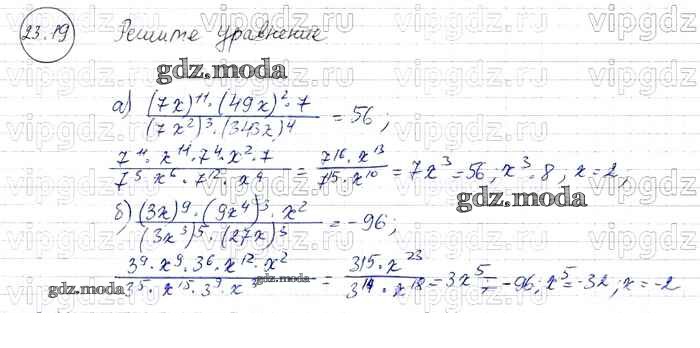 23.19 Решите уравнение
gdz.moda
а) (7x)^11·(49x)^2·7 / (7x^2)^3·(343x)^4 = 56;
7^11·x^11·7^4·x^2·7 / 7^3·x^6·7^12·x^4 = 7^16·x^13 / 7^15·x^10 = 7x^3 = 56, x^3=8, x=2,
gdz.moda
б) (3x)^9·(9x^4)^3·x^2 / (3x^3)^5·(27x)^3 = -96;
3^9·x^9·3^6·x^12·x^2 / 3^5·x^15·3^9·x^3 = 3^15·x^23 / 3^14·x^18 = 3x^5 = -96; x^5=-32; x=-2
gdz.moda
gdz.moda
vipgdz.ru vipgdz.ru vipgdz.ru